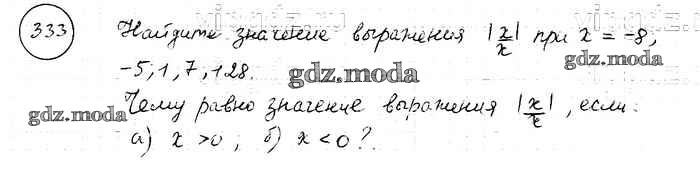 333 Найдите значение выражения |x/x| при x = -8,
-5, 1, 7, 128.
gdz.moda
Чему равно значение выражения |x/x|, если:
gdz.moda
а) x >0; б) x <0?
gdz.moda